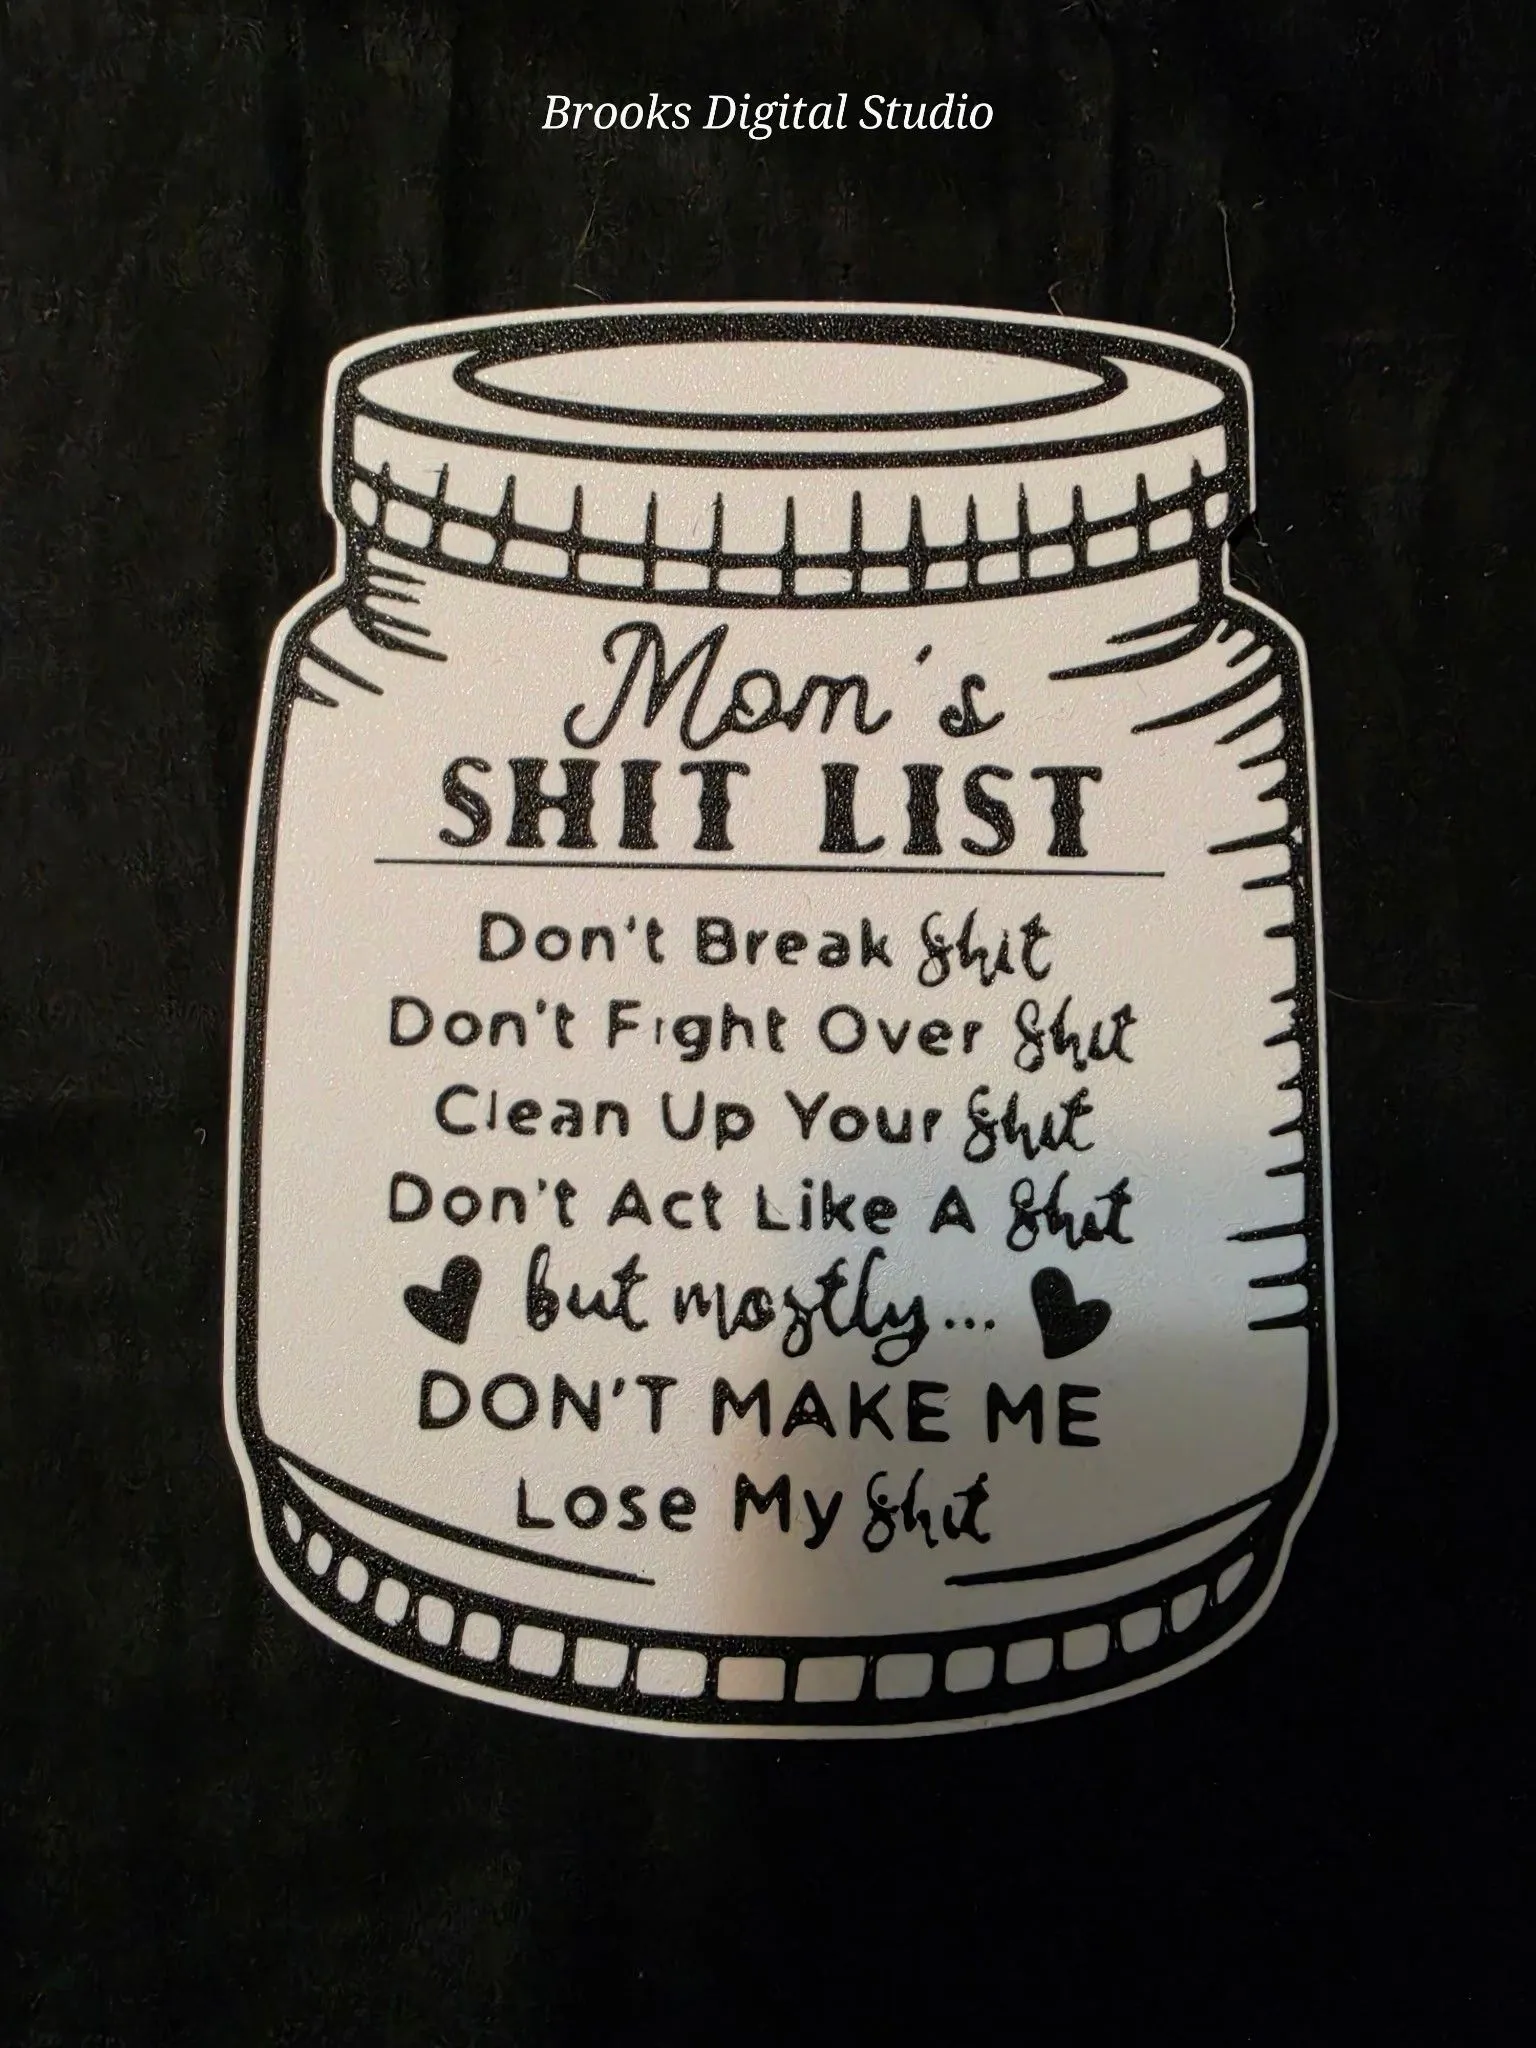 Brooks Digital Studio
Mom's
SHIT LIST
Don't Break Shit
Don't Fight Over Shit
Clean Up Your Shit
Don't Act Like A Shit
but mostly...
DON'T MAKE ME
Lose My Shit